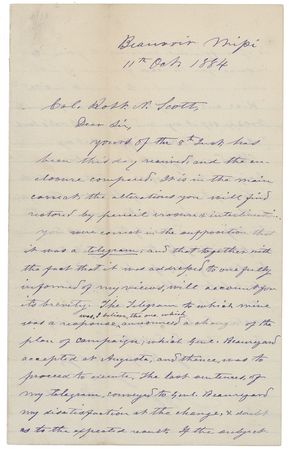 Beauvoir Mipi
11th Oct. 1884
Col. Robt. N. Scott,
Dear Sir,
yours of the 8th Inst. has
been this day received and the en-
closure compared. It is in the main
correct, the alterations you will find
restored by pencil erasures & interlineat
You were correct in the supposition that
it was a telegram, and that together with
the fact that it was addressed to one fully
informed of my views, will account for
its brevity. The Telegram to which mine
was, I believe, the one which
was a response, announced a change of the
plan of campaign, which Genl. Beauregard
accepted at Augusta, and thence was to
proceed to execute. The last sentences of
my telegram, conveyed to Genl. Beauregard
my dissatisfaction at the change, & doubt
as to the expected result. If the subject